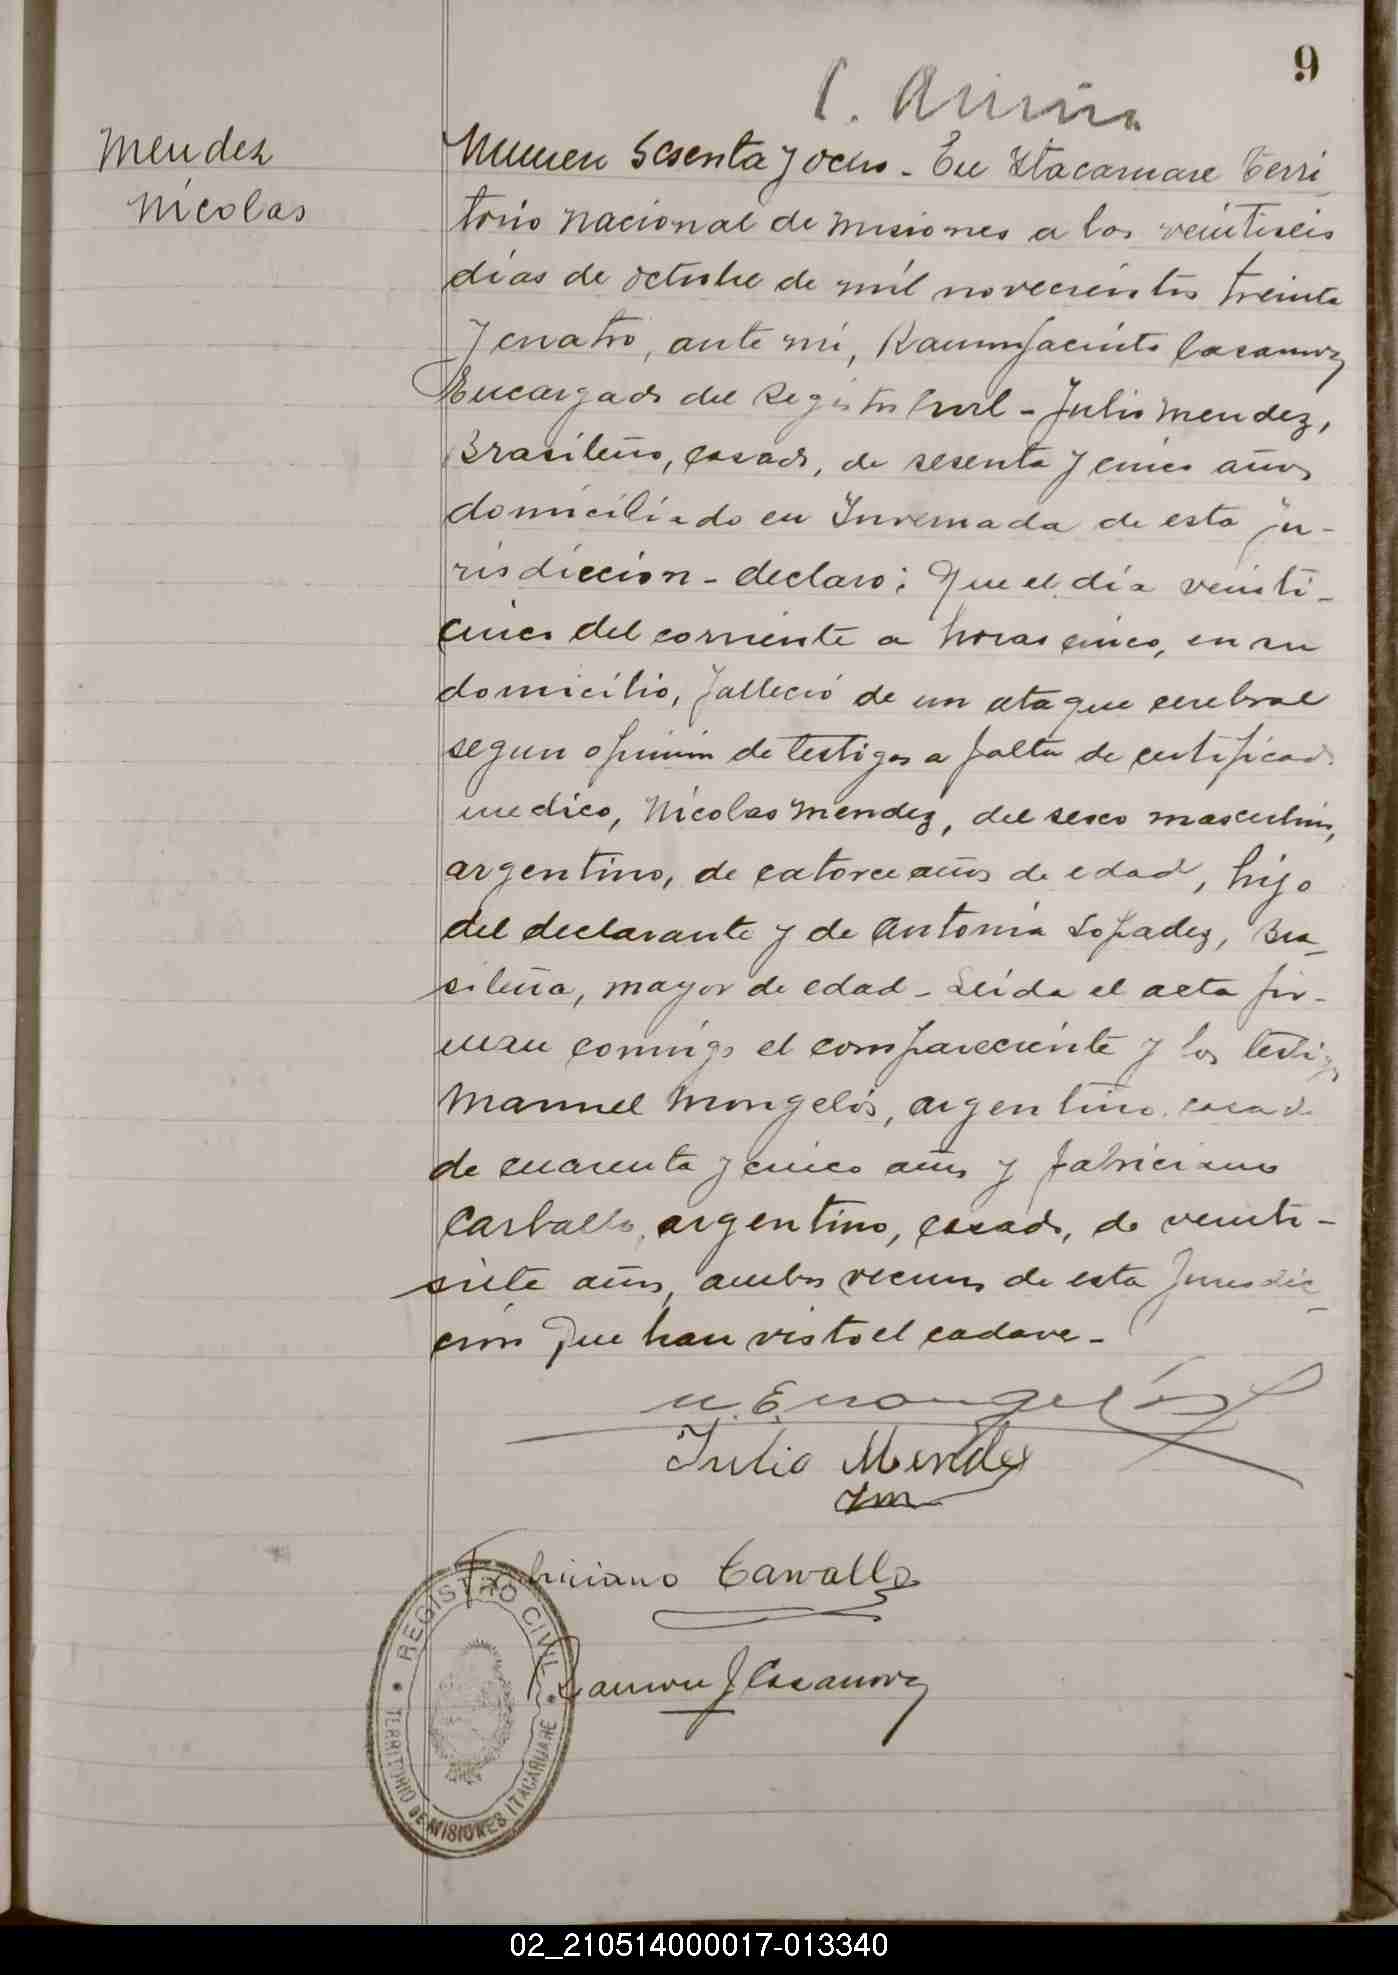 9
Mendez
Nicolas
Numero Sesenta y ocho - En Itacaruare Terri
torio Nacional de Misiones a los veintiseis
días de octubre de mil novecientos treinta
y cuatro, ante mi, Ramon Jacinto Casanova
Encargado del Registro Civil - Julio Mendez,
Brasileño, casado, de sesenta y cinco años
domiciliado en Invernada de esta ju-
risdiccion - declaro: Que el día veinti-
cinco del corriente a horas cinco, en su
domicilio, falleció de un ataque cerebral
segun opinion de testigos a falta de certificado
medico, Nicolas Mendez, del sexo masculino,
argentino, de catorce años de edad, hijo
del declarante y de Antonia Lopadez, Bra_
sileña, mayor de edad - Leida el acta fir-
man conmigo el compareciente y los testigos
Manuel Mongelós, argentino, casado
de cuarenta y cinco años y Fabriciano
Carballo, argentino, casado, de veinti-
siete años, ambos vecinos de esta Jurisdic_
cion que han visto el cadaver -
Julio Mendez
Fabriciano Carvallo
Ramon J Casanova
REGISTRO CIVIL
TERRITORIO DE MISIONES ITACARUARE
02_210514000017-013340